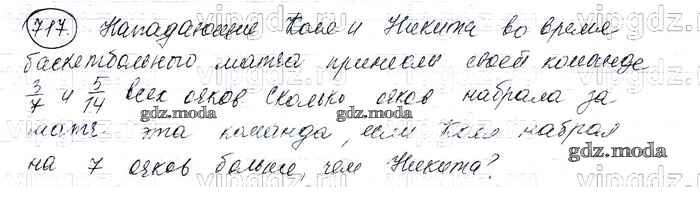 717. Нападающие Коля и Никита во время
баскетбольного матча принесли своей команде
3/7 и 5/14 всех очков Сколько очков набрала за
gdz.moda gdz.moda
матч эта команда, если Коля набрал
gdz.moda
на 7 очков больше, чем Никита?
gdz.moda